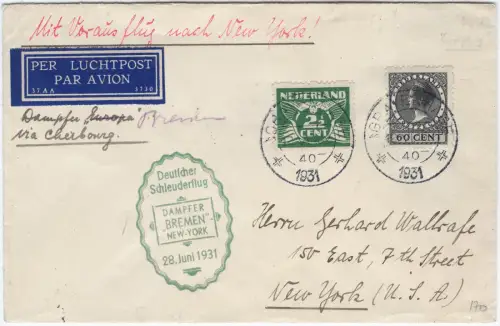 Mit Vorausflug nach New York!
PER LUCHTPOST
PAR AVION
37 A A 3730
Dampfer "Europa" Bremen
via Cherbourg.
NEDERLAND
2½
CENT
60 CENT
40
1931
40
1931
Deutscher
Schleuderflug
DAMPFER
„BREMEN"
NEW-YORK
28. Juni 1931
Herrn Gerhard Wallrafe
150 East, 7th Street
New York (U.S.A.)